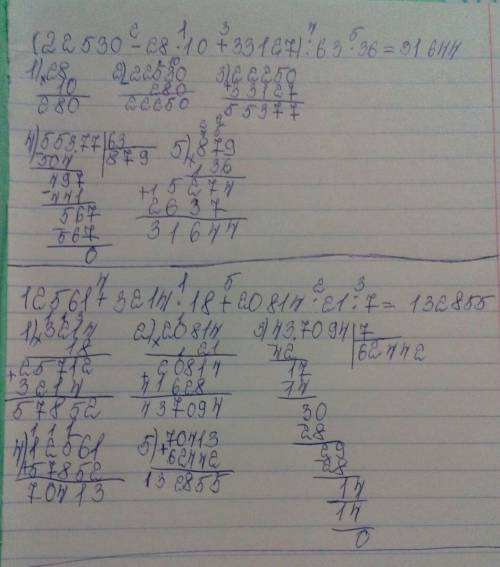 (22530 - 28 · 10 + 33127) : 63 · 36 = 31644
1) 28 2) 22530 3) 22250
10 280 33127
280 22250 55377
4) 55377 | 63 5) 879
504 879 36
497 5274
441 2637
567 31644
567
0
12561 + 3214 · 18 + 20814 · 21 : 7 = 132855
1) 3214 2) 20814 3) 437094 | 7
18 21 42 62442
25712 20814 17
3214 41628 14
57852 437094 30
28
4) 12561 5) 70413 29
57852 62442 28
70413 132855 14
14
0